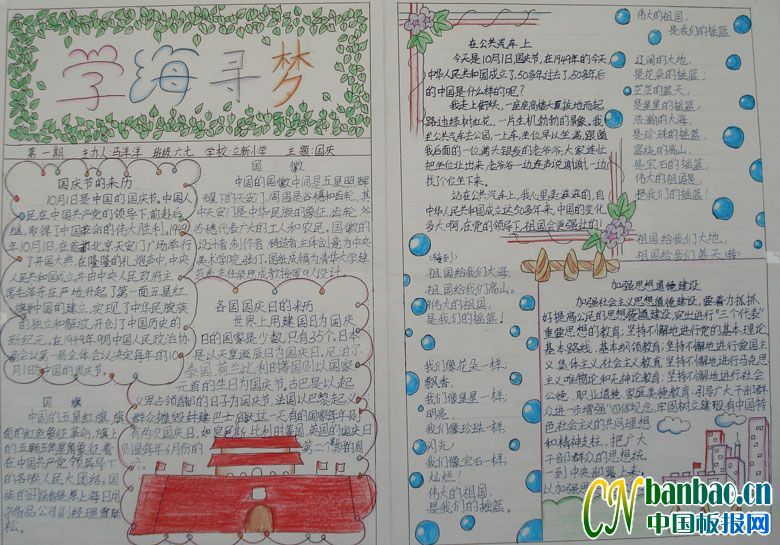 学海寻梦
第一期 主办人马洋洋 班级六七 学校:立新小学 主题:国庆
国庆节的来历
10月1日是中国的国庆节。中国人
民在中国共产党的领导下前赴后
继,取得中国革命的伟大胜利。1949
年10月1日,在首都北京天安门广场举行
了开国大典,在隆隆的礼炮声中,中央
人民共和国成立并由中央人民政府主
席毛泽东庄严地升起了第一面五星红
旗
中国的建立,实现了中华民族
的独立和解放,开创了中国历史的
新纪元。在1949年
10月1日为中国的国庆节。
国旗
中国的五星红旗,旗
面的红色象征革命,旗上
的五颗五角星象征着
在中国共产党领导下
的各族人民大团结。国
旗的
松。
国徽
中国的国徽中间是五星照耀
下的天安门,周围是谷穗和齿轮。其
中天安门是中华民族的象征,齿轮、谷
穗代表广大的工人和农民。国徽的
各国国庆日的来历
世界上用建国日为国庆
日的国家是少数,只有35个,日本
是以天皇诞辰日为国庆日,尼泊尔、
泰国、荷兰、比利时等国则以国家
元首的生日为国庆日。古巴是以起
义占领首都的日子为国庆日。法国以巴黎起义
在公共汽车上
今天是10月1日,国庆节,在1949年的今天
中华人民共和国成立了,50多年过去了,50多年后
的中国是什么样的呢?
我走上街头,一座座高楼大厦拔地而起,
路边绿树红花,一片生机勃勃的景象,我
坐公共汽车去公园,一上车,坐位早以坐满,跟随
我后面的一位满头银发的老爷爷,大家连忙
把坐位让出来,老爷爷一边连声说谢谢!一边
找了个位坐下来。
站在公共汽车上,我心里美滋滋的,自
中华人民共和国成立这50多年来,中国的变化
多大啊,在党的领导下,祖国会更强壮的!
(接到)
祖国给我们大海,
祖国给我们高山。
伟大的祖国,
是我们的摇篮。
我们像花朵一样,
飘香。
我们像星星一样;
明亮,
我们像珍珠一样,
闪光!
我们像宝石一样,
灿烂!
伟大的祖国,
是我们的摇篮。
伟大的祖国,
是我们的摇篮。
辽阔的大地,
是花朵的摇篮。
茫茫的蓝天,
是星星的摇篮。
浩瀚的大海,
是珍珠的摇篮。
富饶的高山,
是宝石的摇篮。
伟大的祖国,
把我们的摇篮!
祖国给我们大地,
祖国给我们蓝天(转)
加强思想道德建设
加强社会主义思想道德建设,要着力抓抓
好提高公民的思想道德建设,突出进行"三个代表"
重要思想的教育,坚持不懈地进行党的基本理论
基本路线、基本纲领教育,坚持不懈地进行爱国主
义、集体主义、社会主义教育,坚持不懈地进行马克思
主义唯物论和无神论教育,坚持不懈地进行社会
公德、职业道德、家庭美德教育,引导广大干部群
众进一步增强"四信"观念,牢固树立建设有中国特
色社会主义的共同理想
和精神支柱,把广大
干部群众的思想统
一到中央部署上来,
以加强思想
CN banbao.cn
中国板报网